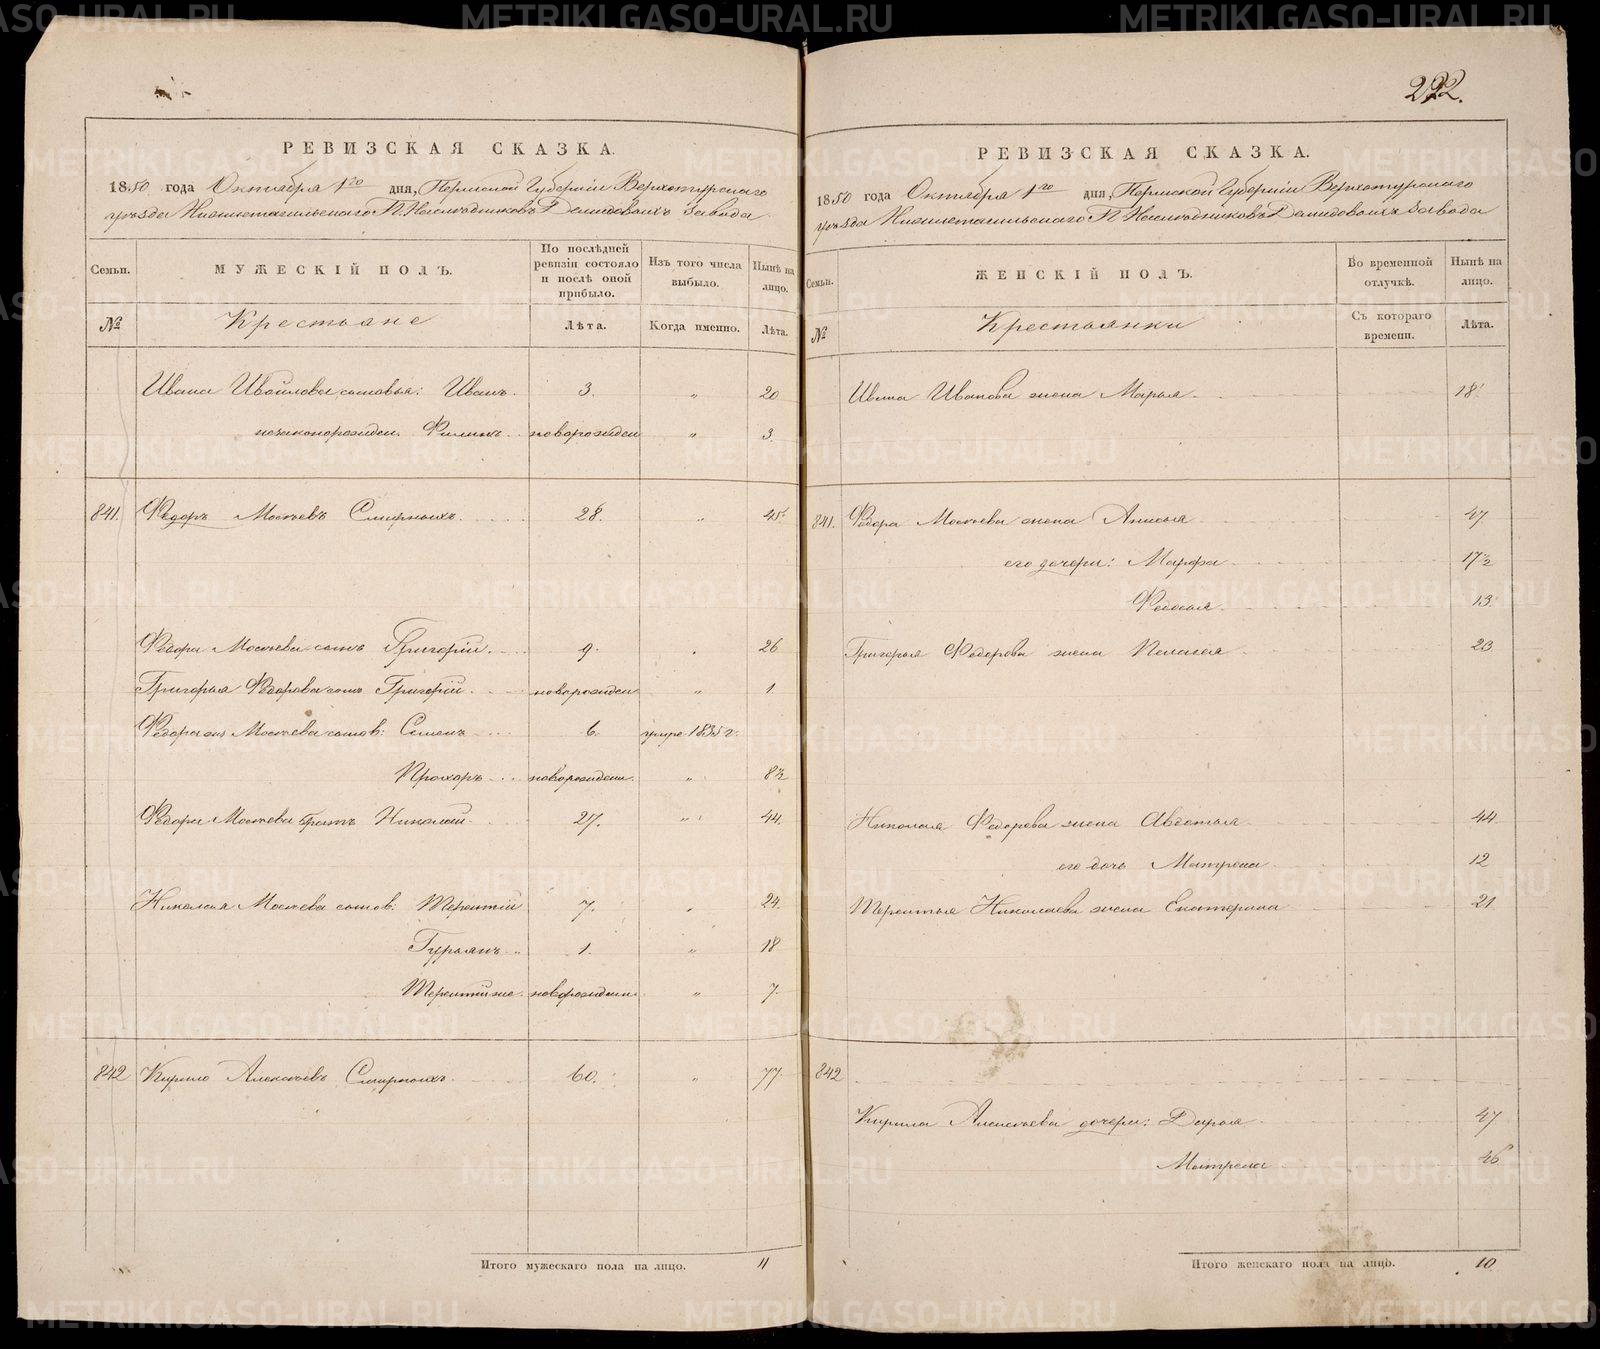 222.
РЕВИЗСКАЯ СКАЗКА.
1850 года Октября 1го дня, Пермской Губерніи Верхотурскаго
уѣзда Нижнетагильскаго Г.г. Наслѣдниковъ Демидовыхъ завода
Семьи. МУЖЕСКІЙ ПОЛЪ. По послѣдней ревизіи состояло и послѣ оной прибыло. Изъ того числа выбыло. Нынѣ на лицо.
№ Крестьяне Лѣта. Когда именно. Лѣта.
Ивана сыновья: Иванъ. 3. " 20
незаконорожден. Филипъ новорожден " 3.
841 Федоръ Моисѣевъ Смирныхъ. 28. " 45
Федора Моисѣева сынъ Григорій. 9. " 26
Григорья Федорова сынъ Григорій. новорожден " 1
Федора Моисѣева сынов: Семенъ 6. умре 1835 г.
Прохоръ новорожден. " 8½
Федора Моисѣева братъ Николай. 27. " 44.
Николая Моисѣева сынов: Терентій 7. " 24.
Гурьянъ 1. " 18
Терентій же. новорожден. " 7.
842 Кирило Алексѣевъ Смирныхъ. 60. " 77.
Итого мужескаго пола на лицо. 11
РЕВИЗСКАЯ СКАЗКА.
1850 года Октября 1го дня, Пермской Губерніи Верхотурскаго
уѣзда Нижнетагильскаго Г.г. Наслѣдниковъ Демидовыхъ завода
Семьи. ЖЕНСКІЙ ПОЛЪ. Во временной отлучкѣ. Нынѣ на лицо.
№ Крестьянки Съ котораго времени. Лѣта.
Ивана Иванова жена Марья. 18
841. Федора Моисѣева жена Анисья 47
его дочери: Марфа 17½
Федосья. 13
Григорья Федорова жена Пелагея 23
Николая Федорова жена Авдотья 44
его дочь Матрена 12
Терентья Николаева жена Екатерина 21
842
Кирила Алексѣева дочери: Дарья 47
Матрена 46
Итого женскаго пола на лицо. 10
METRIKI.GASO-URAL.RU